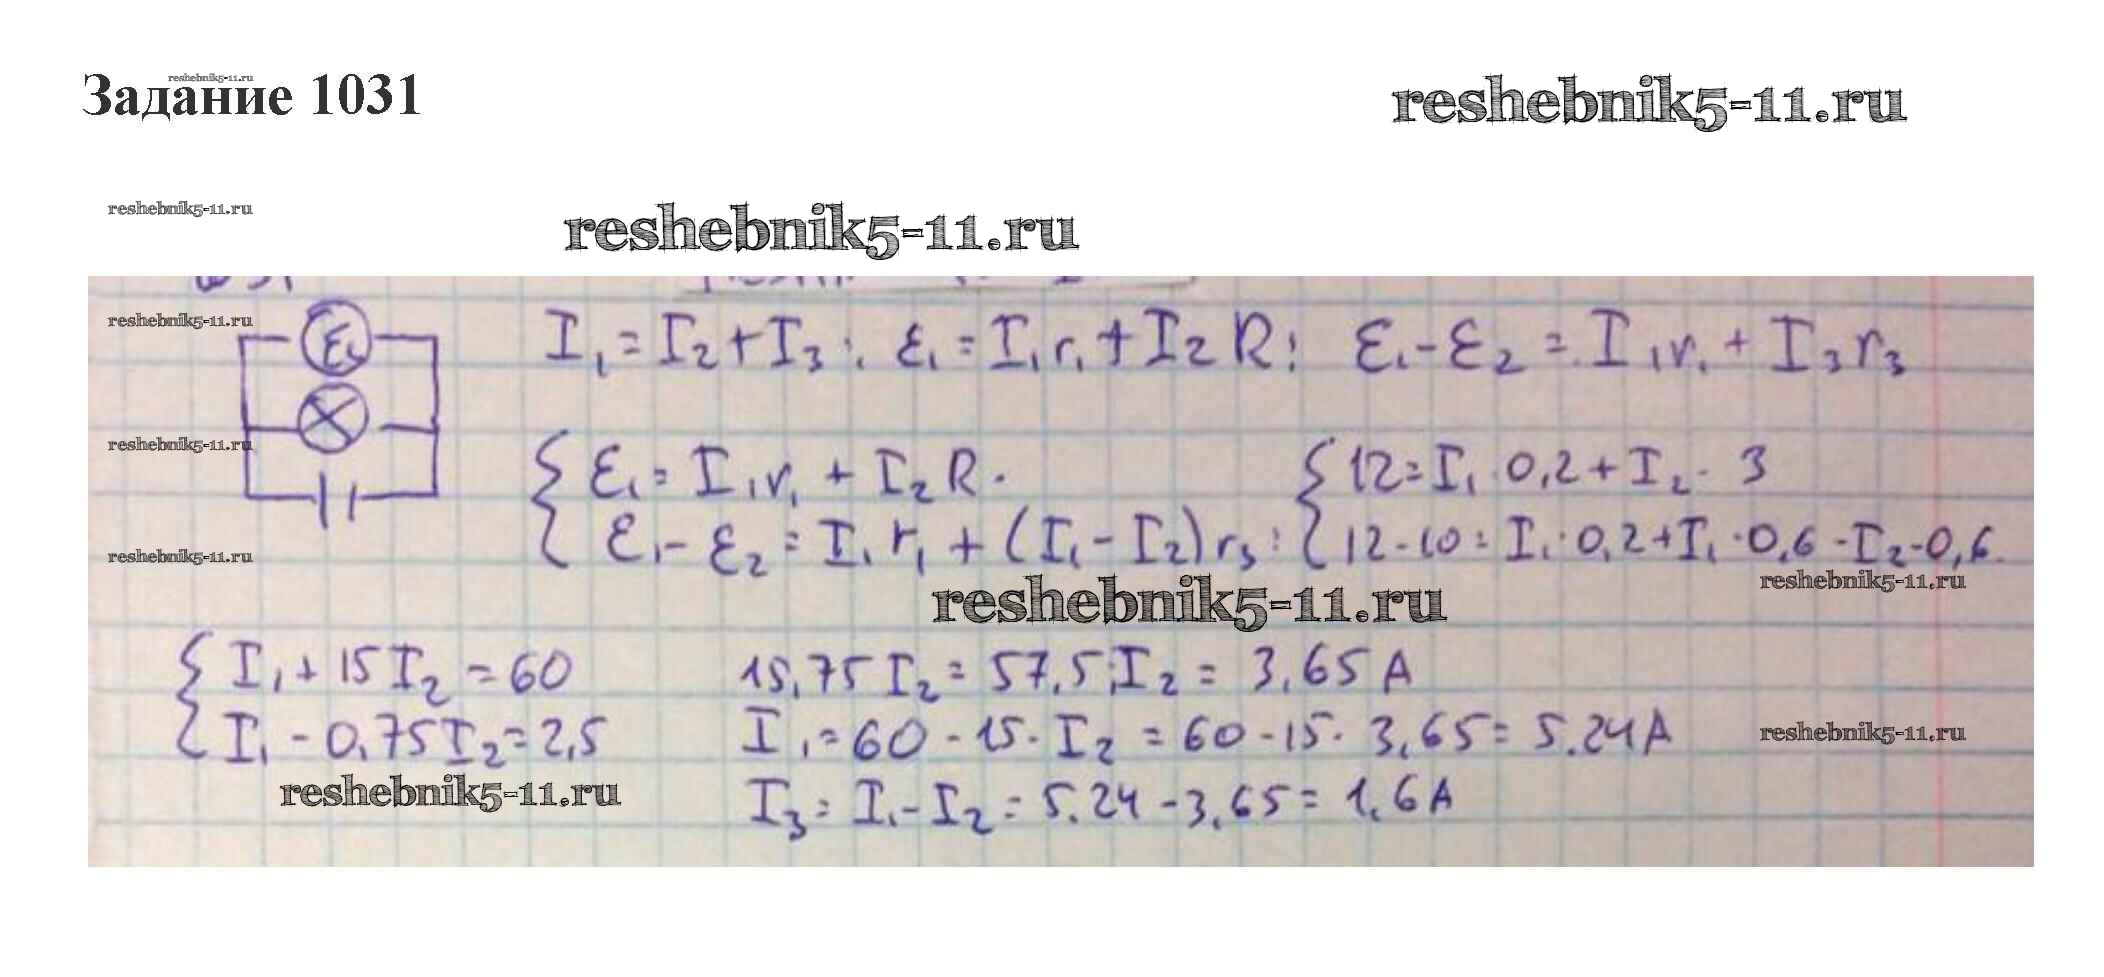 Задание 1031
reshebnik5-11.ru
reshebnik5-11.ru
reshebnik5-11.ru
reshebnik5-11.ru
reshebnik5-11.ru
ε₁
I₁ = I₂ + I₃; ε₁ = I₁r₁ + I₂R; ε₁ - ε₂ = I₁r₁ + I₃r₃
reshebnik5-11.ru
{ ε₁ = I₁r₁ + I₂R. { 12 = I₁·0,2 + I₂·3
ε₁ - ε₂ = I₁r₁ + (I₁ - I₂)r₃ : 12 - 10 = I₁·0,2 + I₁·0,6 - I₂·0,6.
reshebnik5-11.ru
reshebnik5-11.ru
reshebnik5-11.ru
reshebnik5-11.ru
{ I₁ + 15I₂ = 60 15,75I₂ = 57,5; I₂ = 3,65 A
I₁ - 0,75I₂ = 2,5 I₁ = 60 - 15·I₂ = 60 - 15·3,65 = 5.24 A
reshebnik5-11.ru
reshebnik5-11.ru
I₃ = I₁ - I₂ = 5.24 - 3,65 = 1,6 A